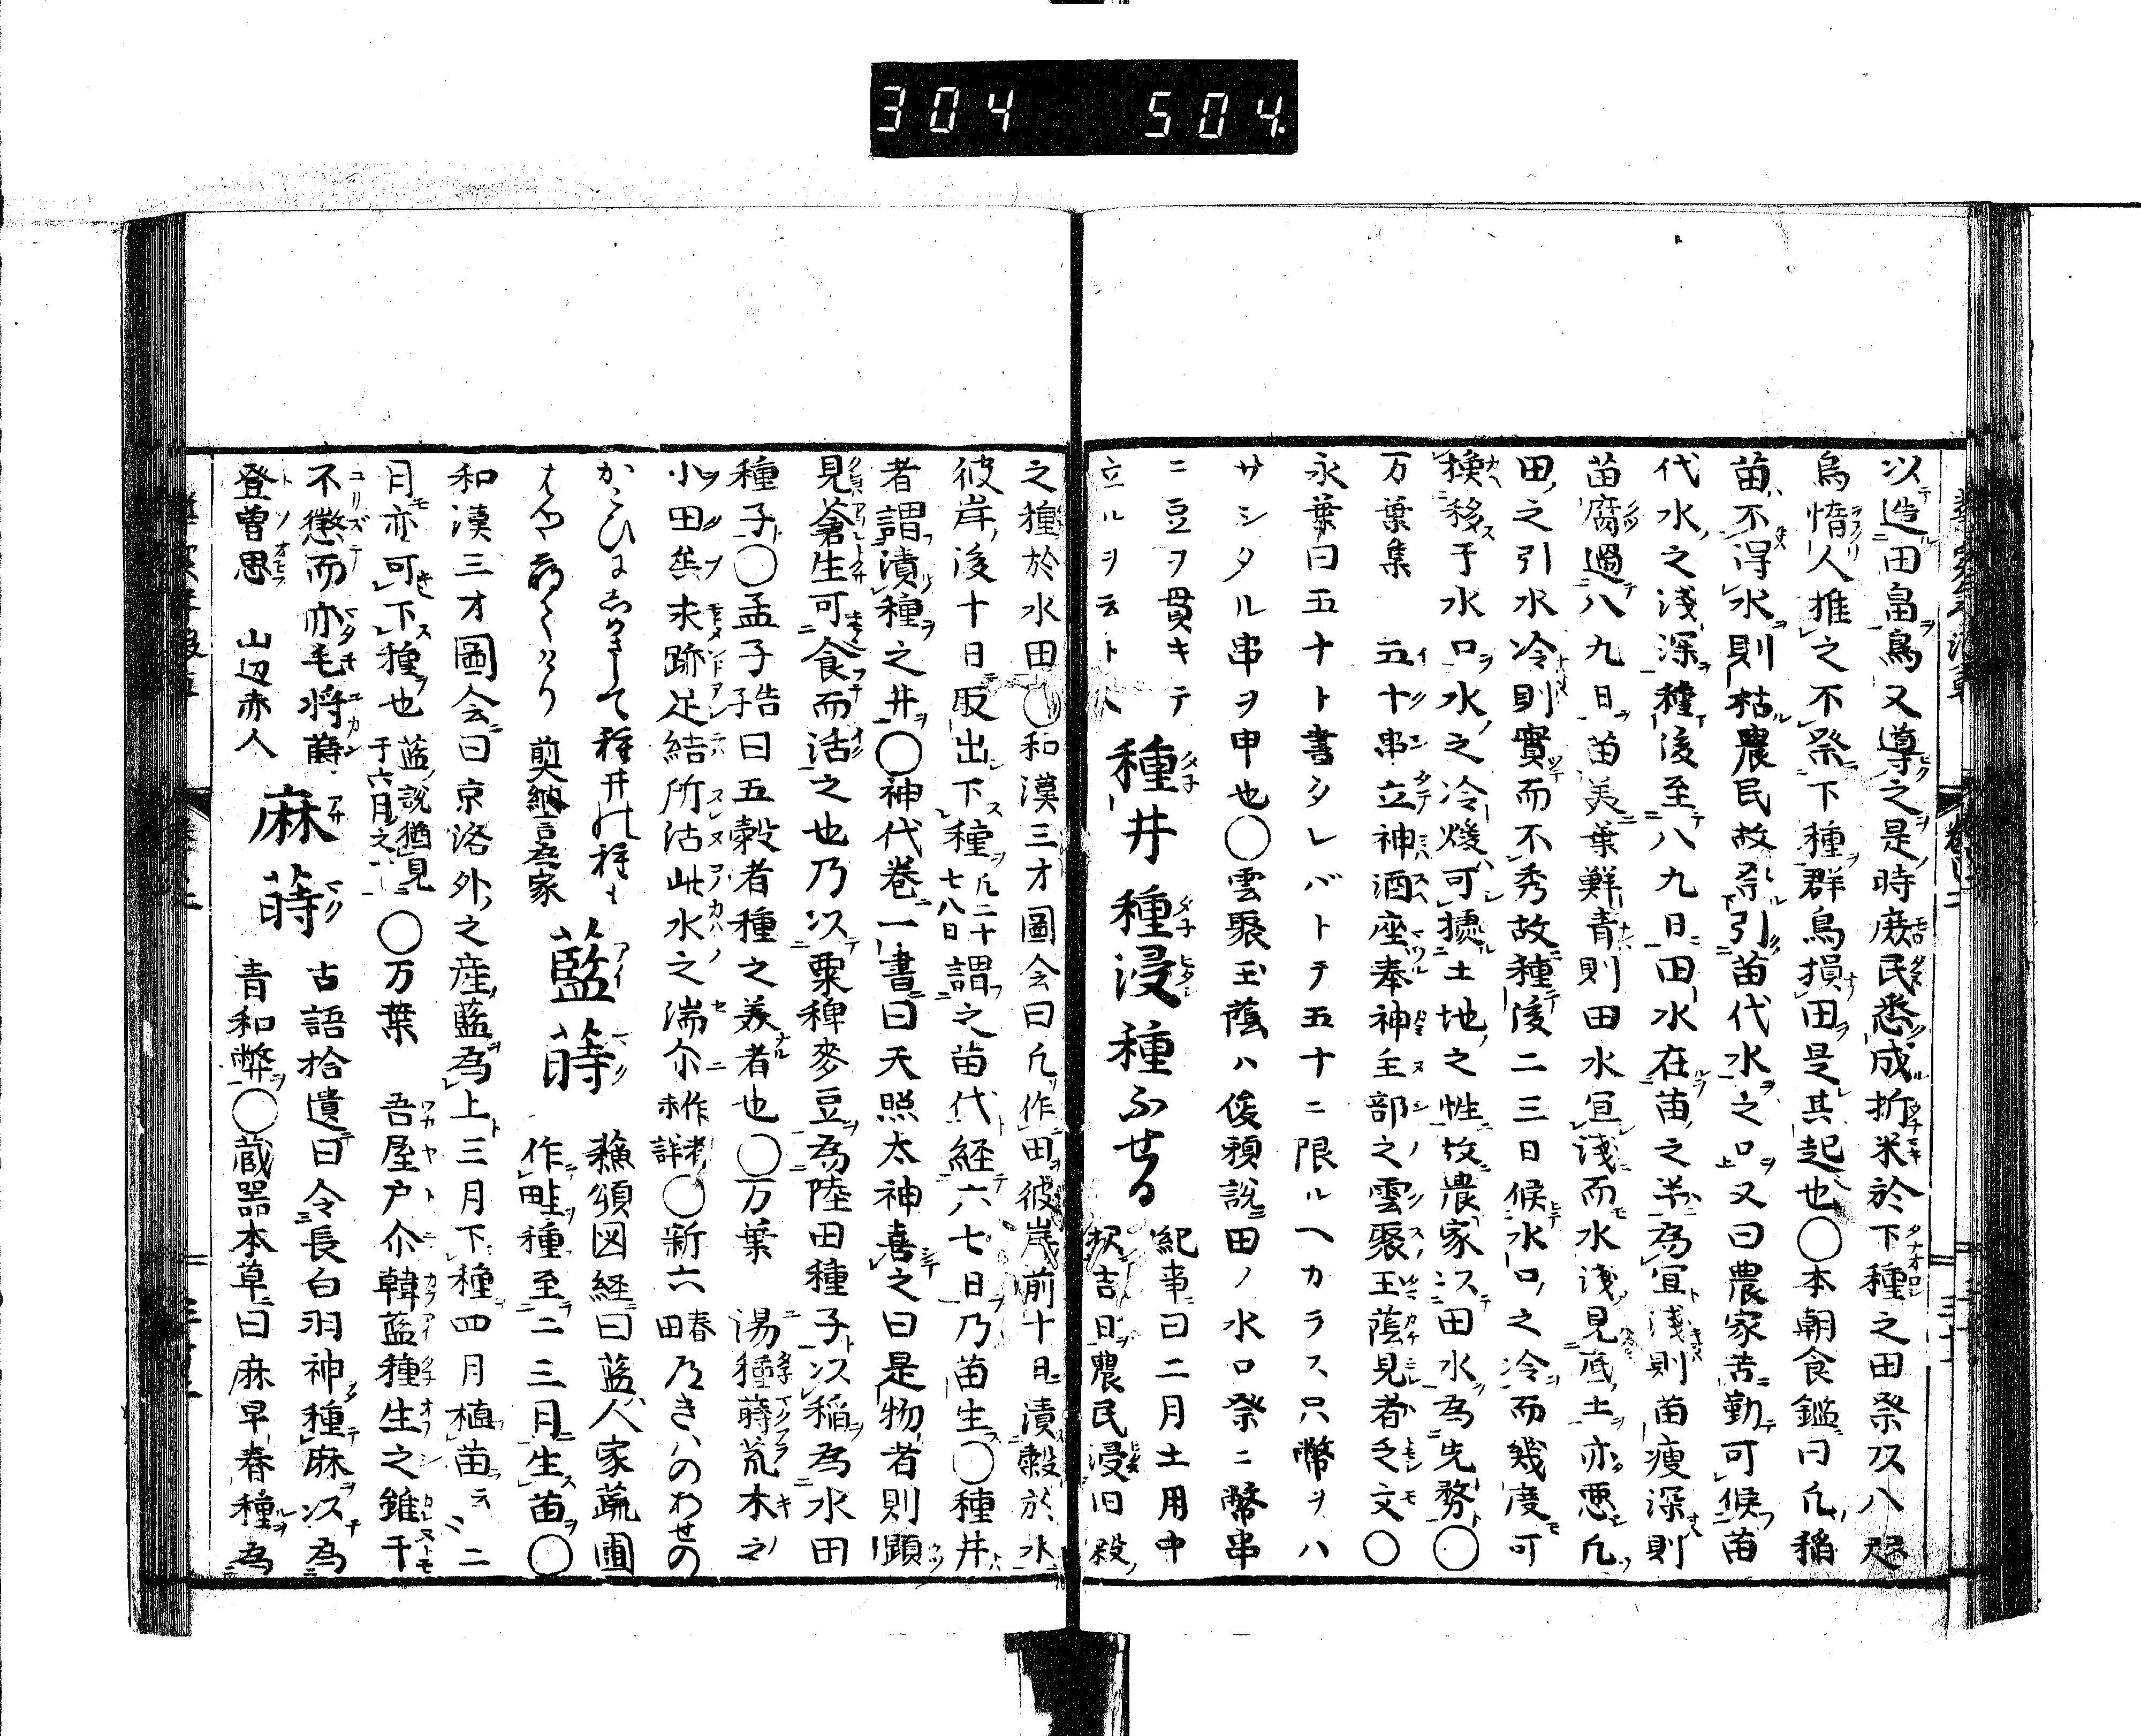 304 504
以造田畠鳥又導之是時庶民悉成折米於下種之田祭以八咫
烏惰人推之不祭下種群鳥損田是其起也〇本朝食鑑曰凡稲
苗不得水則枯農民故祭引苗代水之口又曰農家苦勤可候苗
代水之浅深種後至八九日田水在苗之半為宜浅則苗痩深則
苗腐過八九日苗美葉鮮青則田水宜浅而水浅見底土亦悪凡
田之引水冷則實而不秀故種後二三日候水口之冷而幾度可
換移于水口水之冷煖可揔土地之性故農家以田水為先務〇
万葉集 五十串立神酒座奉神主部之雲聚玉蔭見者乏文〇
永葉曰五十ト書タレバトテ五十ニ限ルヘカラス只幣ヲハ
サシタル串ヲ申也〇雲聚玉蔭ハ俊頼説田ノ水口祭ニ幣串
ニ豆ヲ貫キテ
立ルヲ云ト
種井 種浸 種ふせる
紀事曰二月土用中
択吉日農民浸旧穀
之種於水田〇和漢三才圖会曰凡作田彼岸前十日漬穀於水
彼岸後十日取出下種凡二十七八日謂之苗代経六七日乃苗生〇種井
者謂漬種之井〇神代巻一書曰天照太神喜之曰是物者則顕
見蒼生可食而活之也乃以粟稗麥豆為陸田種子以稲為水田
種子〇孟子 集註曰五穀者種之美者也〇万葉 湯種蒔荒木之
小田矣求跡足結所沾此水之湍尓作者未詳〇新六 春田
かこひにしめさして種井の種も
煎納言為家
藍蒔
蘓頌図経曰藍人家蔬圃
作畦種至二三月生苗〇
和漢三才圖会曰京洛外之産藍為上三月下種四月植苗云二
月亦可下種也藍説猶見于六月之〇万葉 吾屋戸尓韓藍種生之雖干
不懲而亦毛将蒔
登曽思 山辺赤人
麻蒔
古語拾遺曰令長白羽神種麻以為
青和幣〇蔵器本草曰麻早春種為